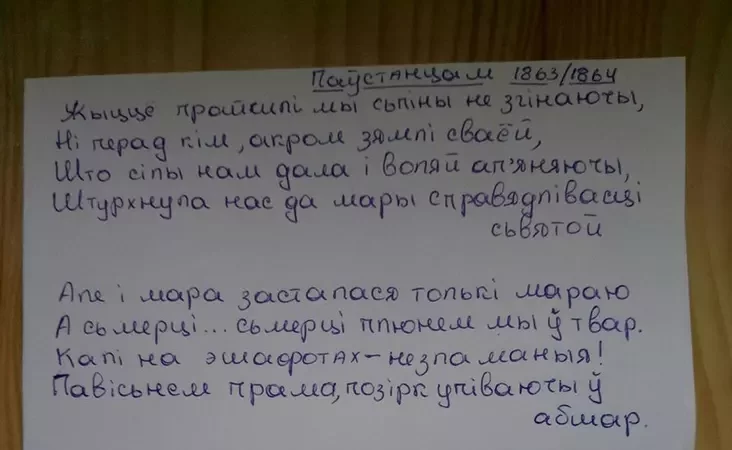 Паўстанцам 1863/1864
Жыццё прайшлі мы сьпіны не згінаючы,
Ні перад кім, акром зямлі сваёй,
Што сілы нам дала і воляй ап'яняючы,
Штурхнула нас да мары справядлівасці
сьвятой
Але і мара засталася толькі мараю
А сьмерці... сьмерці плюнем мы ў твар.
Калі на эшафотах – незламаныя!
Павісьнем прама, позірк упіваючы ў
абшар.